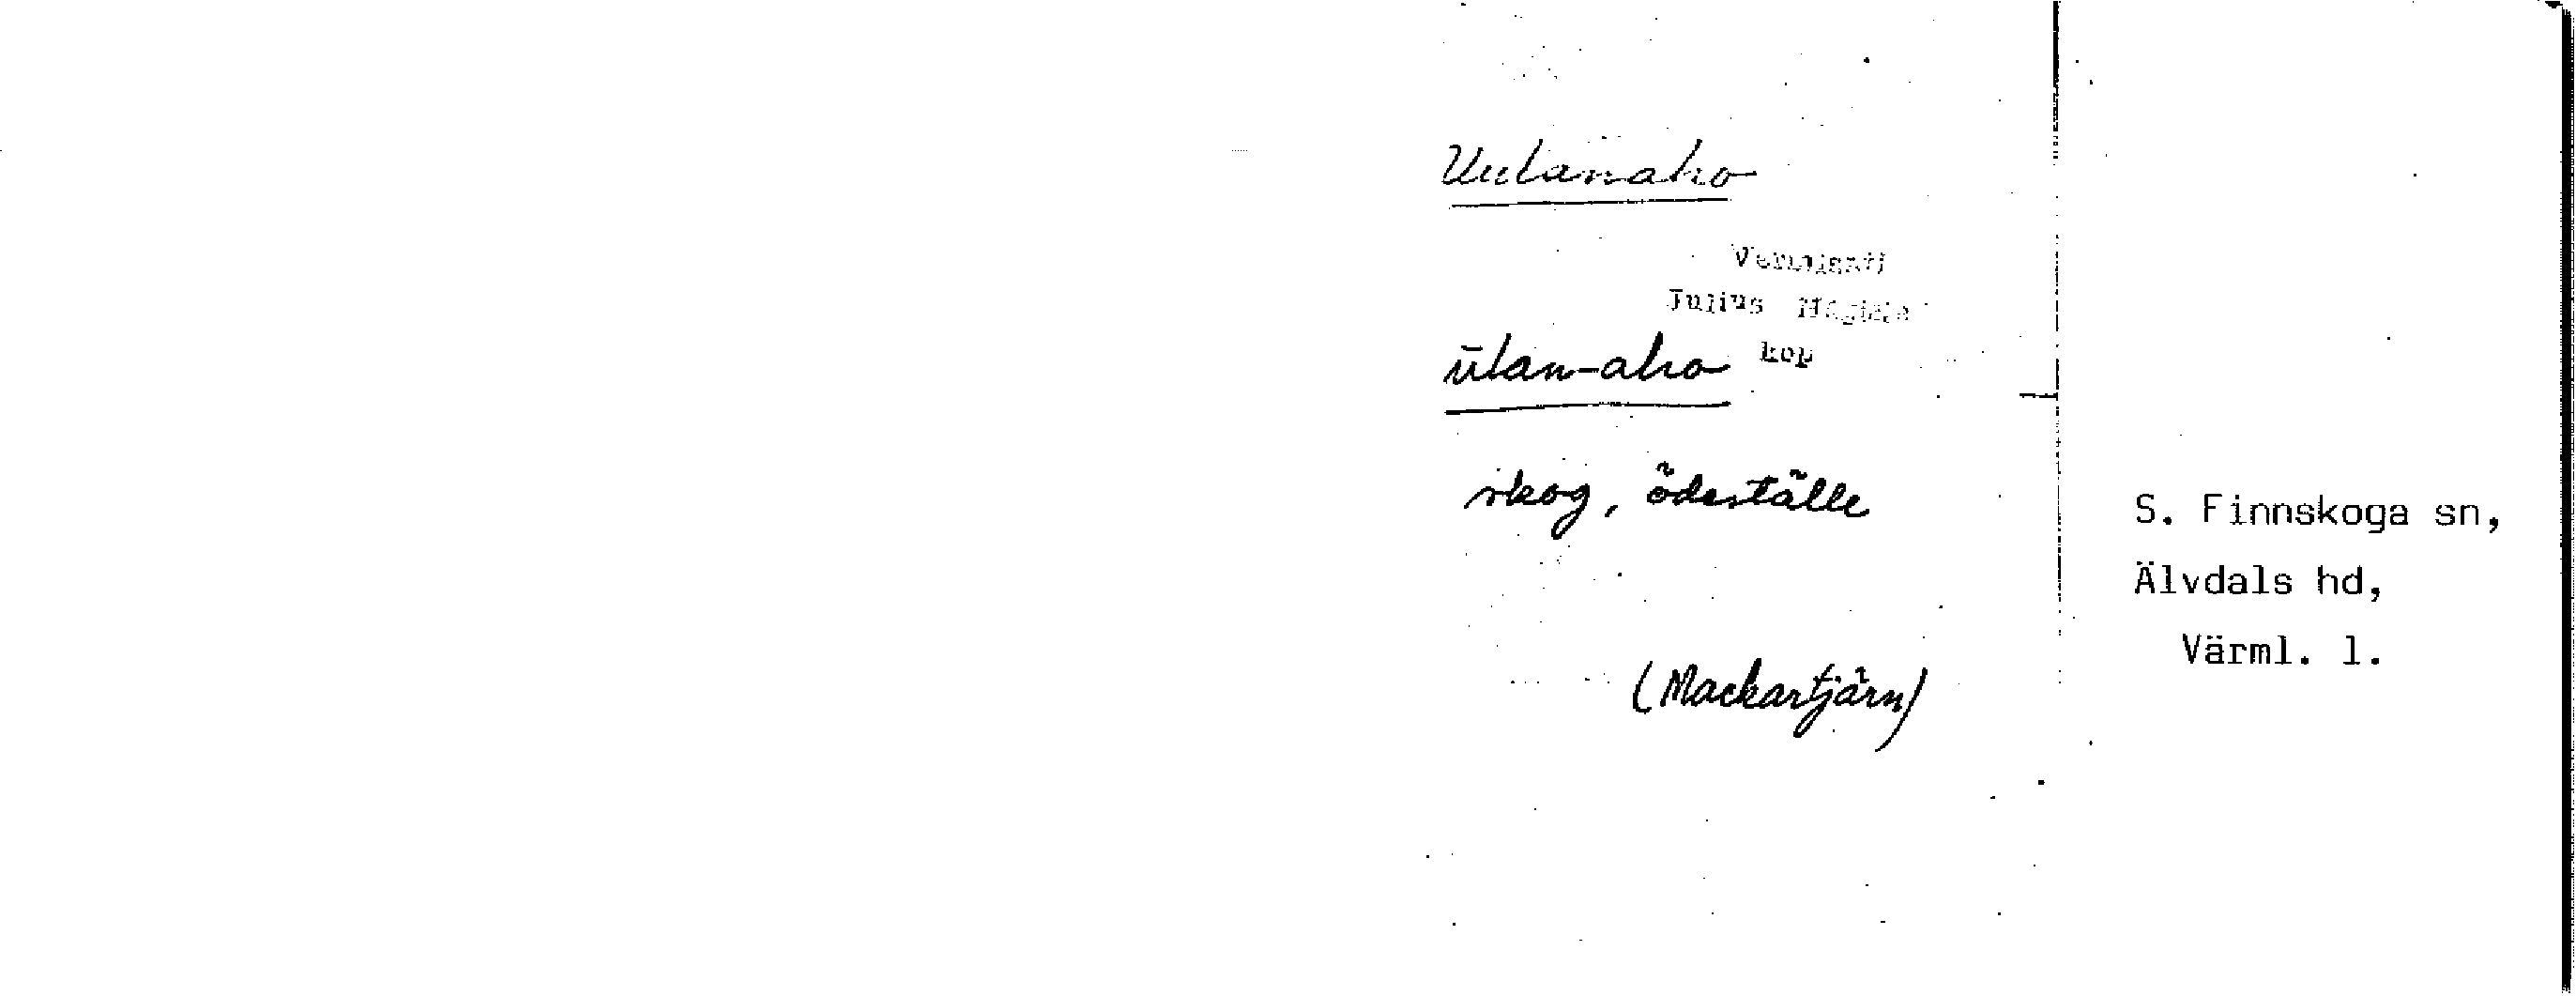 Uulanaho
Julius
ūlan-aho
kop
skog, ödeställe
(Mackartjärn)
S. Finnskoga sn,
Älvdals hd,
Värml. l.